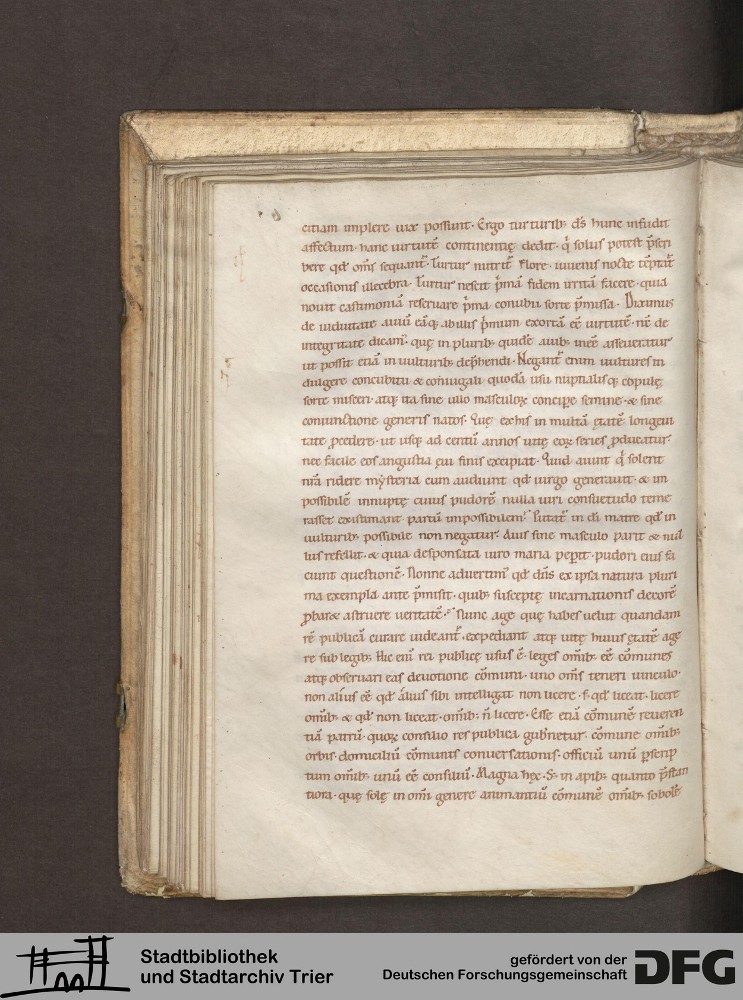 citiam implere uix possunt. Ergo turturib; d̅s hunc infudit
affectum. hanc uirtutē continentię dedit. q̇ solus potest p̄scri
bere qđ om̄s sequant̄. Turtur nec flore iuuenis nocte tēptat̄
occasionis illecebra. Turtur nescit p̄mā fidem irritā facere. quia
nouit castimoniā reseruare p̄ma conubii sorte p̄missa. Diximus
de uiduitate auiū eāq; ab illis p̄mum exortā eē uirtutē. nc̄ de
integritate dicam̄. quę in plurib; quidē auib; inēē asseueratur
ut possit etiā in uulturib; dep̄hendi. Negant̄ enim uultures in
dulgere concubitu & coniugali quodā usu nuptialisq; copulę
sorte misceri. atq; ita sine ullo masculoꝝ concipe semine. & sine
coniunctione generis natos. Quę ex his in multā ętatē longeui
tate ꝓcedere. ut usq; ad centū annos uitę eoꝝ series ꝓducatur.
nec facile eos angustia ęui finis excipiat. Quid aiunt q̇ solent
nr̄a ridere mẏsteria cum audiunt qđ uirgo generauit. & in
possibilē innuptę cuius pudorē nulla uiri consuetudo teme
rasset existimant partū impossibilem. Putat̄ in dī matre qđ in
uulturib; possibile non negatur. Auis sine masculo parit & nul
lus refellit. & quia desponsata uiro maria pepit. pudori eius fa
ciunt questionē. Nonne aduertim̄ qđ dn̄s ex ipsa natura pluri
ma exempla ante p̄misit. quib; susceptę incarnationis decorē
ꝓbar& astruere ueritatē. Nunc age quę habes uelut quandam
rē publicā curare uideant̄. expediant atq; uitę huius ętatē age
re sub legib; Hic enī rei publicę usus ē. leges om̄ib; eē cōmunes
atq; obseruari eas deuotione cōmuni. uno om̄s teneri uinculo.
non alíus eē qđ álius sibi intelligat non licere. s; qđ liceat. licere
om̄ib; & qđ non liceat. om̄ib; n̄ licere. Esse etiā cōmunē reueren
tiā patrū. quoꝝ consilio res publica gub̄netur. cōmune om̄ib;
orbis domiciliū cōmunis conuersationis. officiū unū p̄scrip
tum om̄ib; unū eē consiliū. Magna hęc. S; in apib; quanto p̄stan
tiora. quę solę in om̄i genere animantiū cōmunē om̄ib; sobolē
Stadtbibliothek
und Stadtarchiv Trier
gefördert von der
Deutschen Forschungsgemeinschaft
DFG